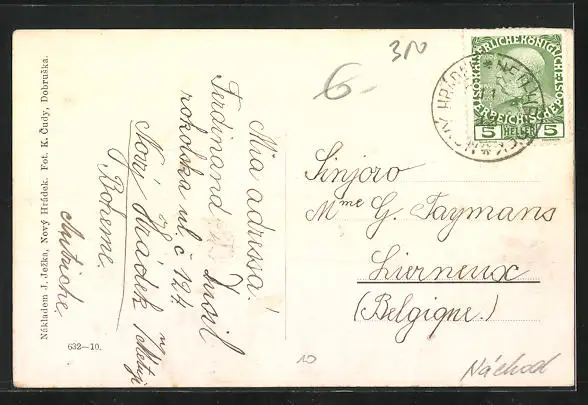 Nákladem J. Ježka, Nový Hrádek. Fot. K. Čudy, Dobruška.
632—10.
Mia adressa!
Ferdinand Kussl
rokolska ul. č 124
Nový Hrádek
Boheme.
Autriche.
6-
3N
KAISERLICHE KÖNIGLICHE
ÖSTERREICHISCHE POST
5 HELLER 5
NÝ HRÁDEK
Sinjoro
Mme G. Taymans
Lierneux
(Belgique.)
10
Náchod